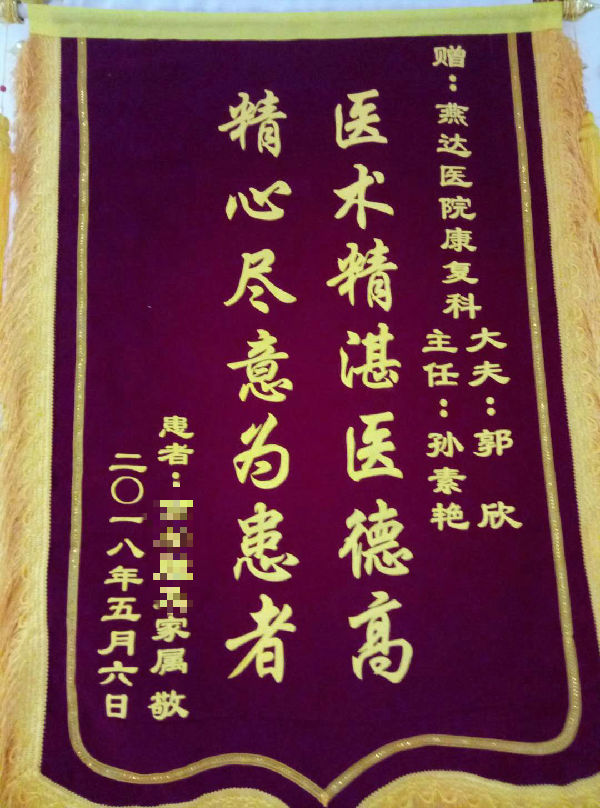 赠：燕达医院康复科
大夫：郭欣
主任：孙素艳
医术精湛医德高
精心尽意为患者
患者：家属敬
二〇一八年五月六日